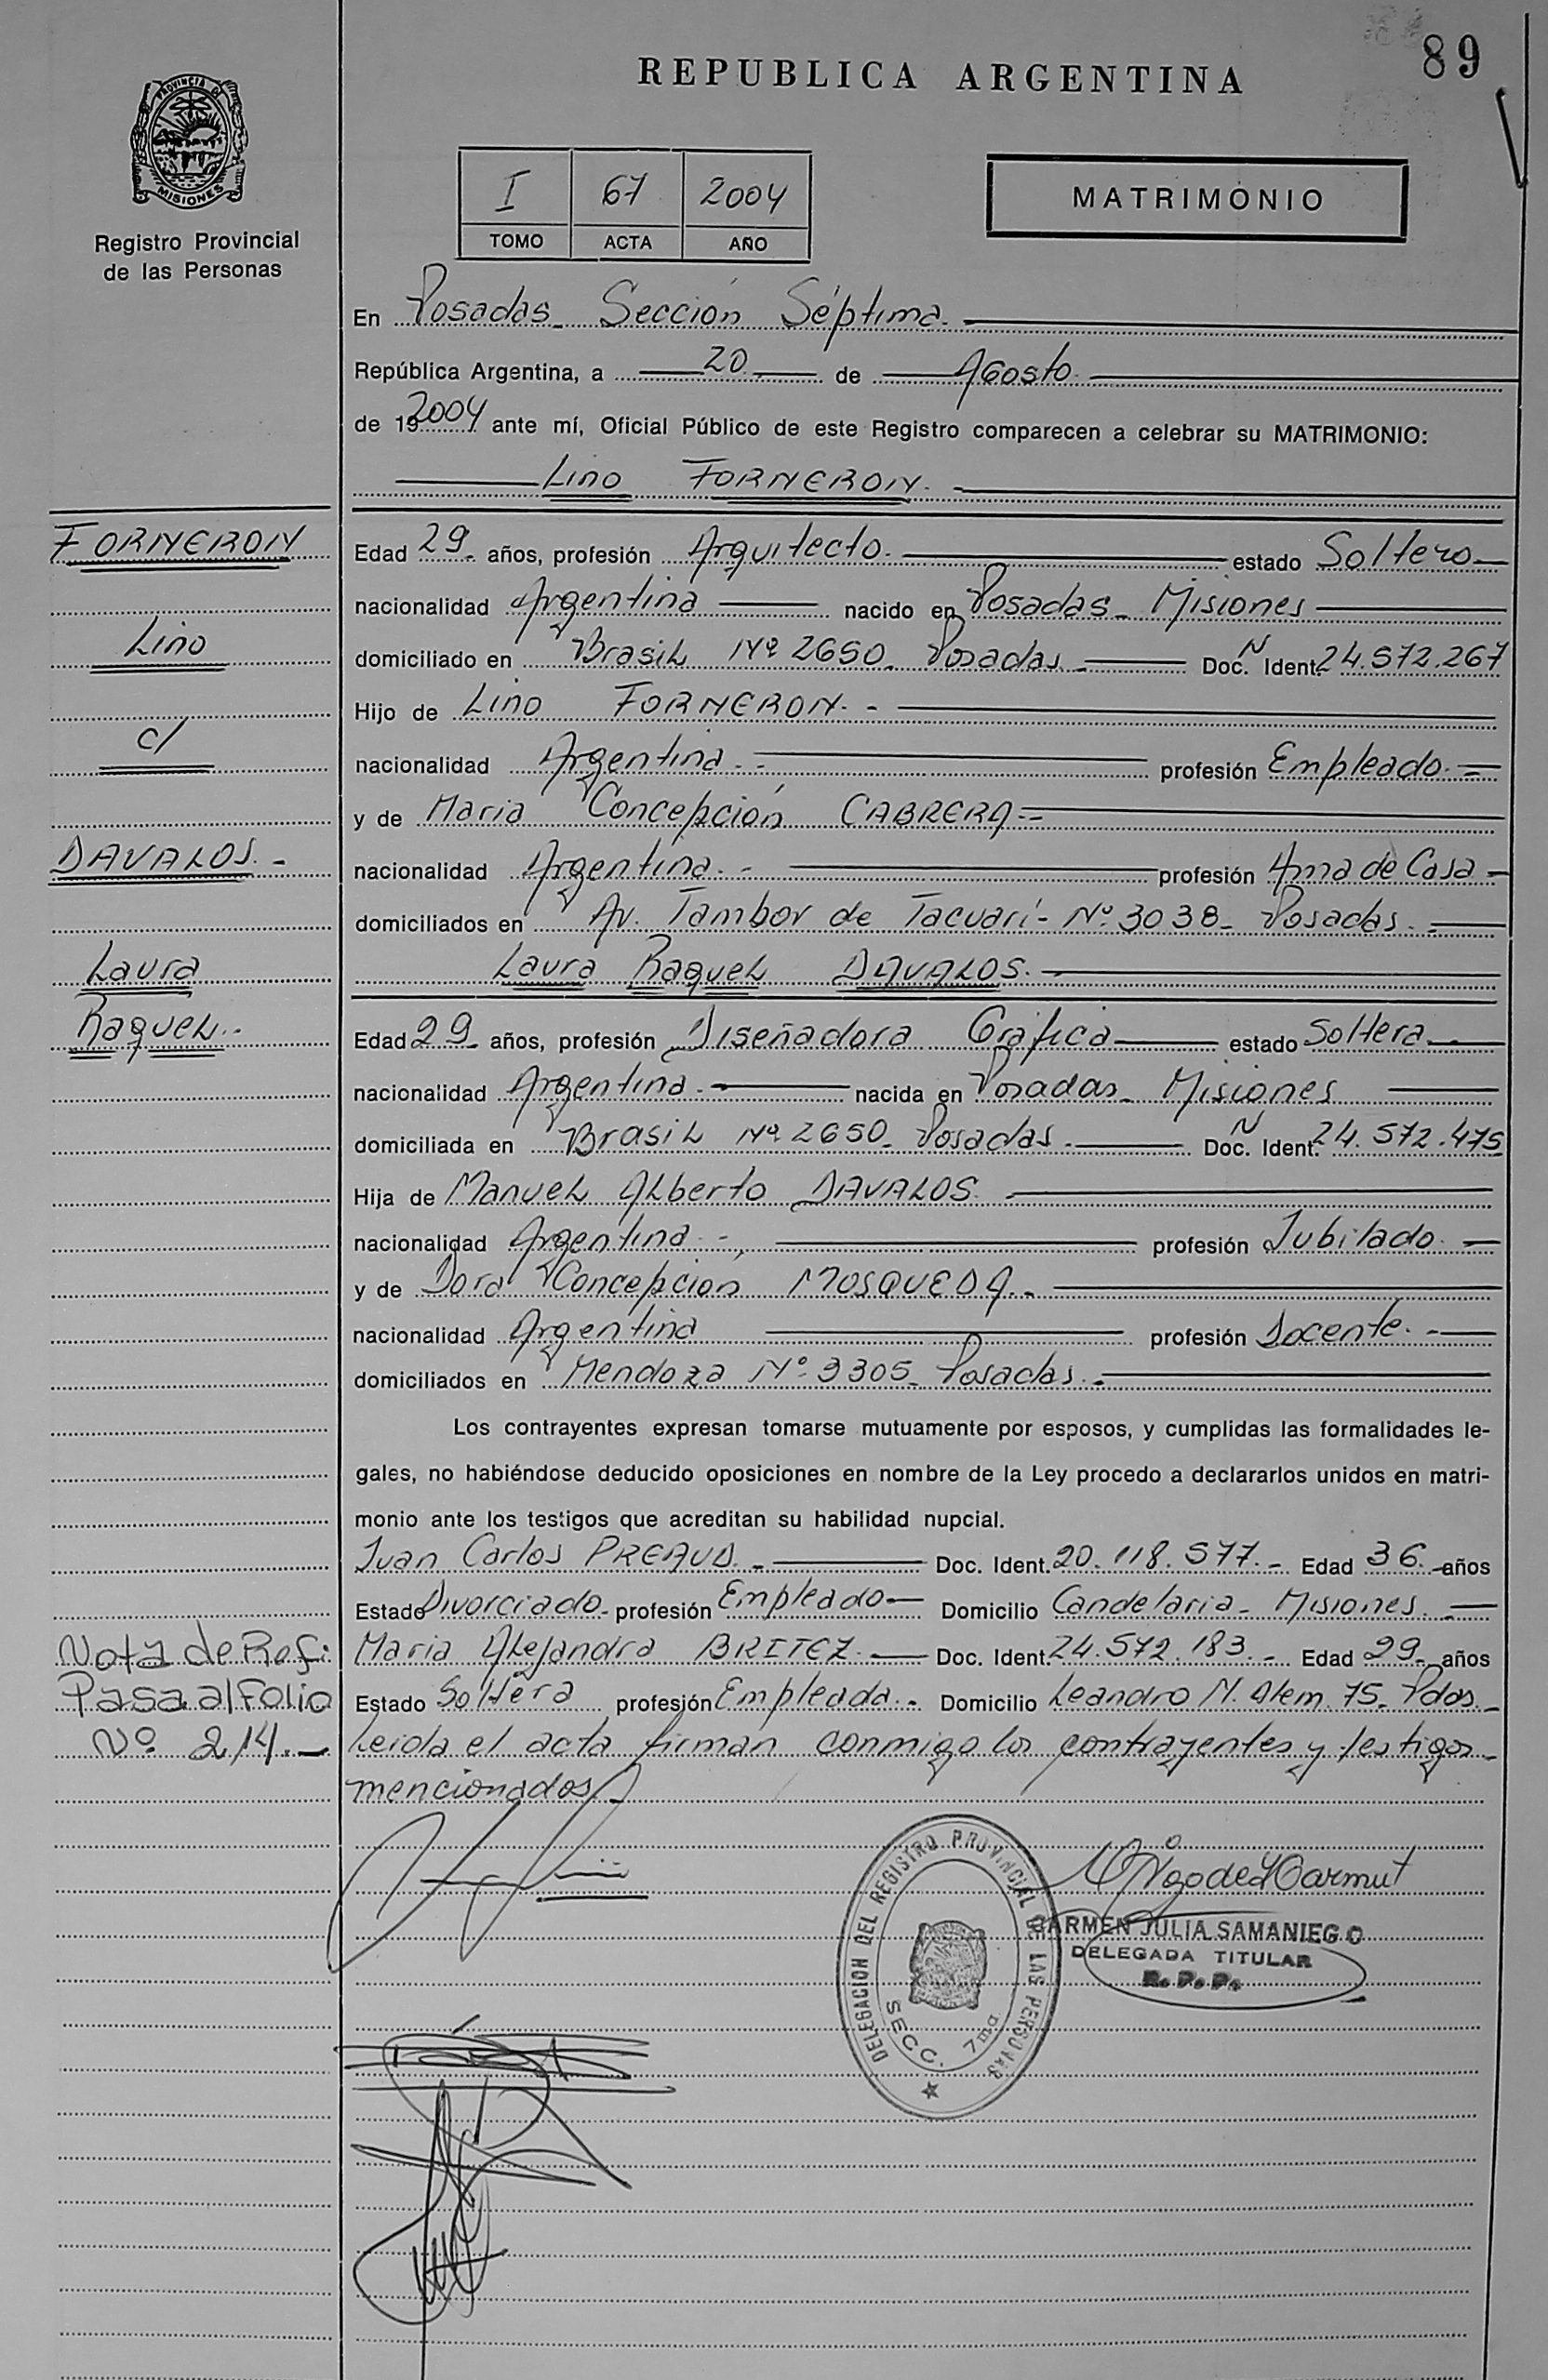 89
REPUBLICA ARGENTINA
PROVINCIA DE
MISIONES
Registro Provincial
de las Personas
I 67 2004
TOMO ACTA AÑO
MATRIMONIO
En Posadas Sección Séptima.
República Argentina, a 20 de Agosto.
de 192004 ante mí, Oficial Público de este Registro comparecen a celebrar su MATRIMONIO:
Lino FORNERON.
FORNERON
Lino
c/
DAVALOS. -
Laura
Raquel.-
Edad 29. años, profesión Arquitecto. estado Soltero
nacionalidad Argentina nacido en Posadas_ Misiones
domiciliado en Brasil Nº 2650_ Posadas_ Doc. N Ident. 24.572.267
Hijo de Lino FORNERON. -
nacionalidad Argentina. - profesión Empleado. -
y de Maria Concepción CABRERA -
nacionalidad Argentina. - profesión Ama de Casa -
domiciliados en Av. Tambor de Tacuarí - Nº 3038_ Posadas. -
Laura Raquel DAVALOS. -
Edad 29_ años, profesión Diseñadora Gráfica estado Soltera
nacionalidad Argentina. - nacida en Posadas_ Misiones
domiciliada en Brasil Nº 2650_ Posadas. - Doc. N Ident. 24.572.475
Hija de Manuel Alberto DAVALOS
nacionalidad Argentina. - profesión Jubilado. -
y de Dora Concepción MOSQUEDA. -
nacionalidad Argentina profesión Docente. -
domiciliados en Mendoza Nº 3305_ Posadas. -
Los contrayentes expresan tomarse mutuamente por esposos, y cumplidas las formalidades le-
gales, no habiéndose deducido oposiciones en nombre de la Ley procedo a declararlos unidos en matri-
monio ante los testigos que acreditan su habilidad nupcial.
Juan Carlos PREAUD. - Doc. Ident. 20.118.577. - Edad 36. años
Estado Divorciado_ profesión Empleado Domicilio Candelaria_ Misiones. -
Maria Alejandra BRITEZ. Doc. Ident. 24.572.183. - Edad 29_ años
Estado Soltera profesión Empleada. - Domicilio Leandro N. Alem. 75_ Pdas. -
Leida el acta firman conmigo los contrayentes y testigos
mencionados. -
Nota de Ref:
Pasa al Folio
Nº 214. -
DELEGACION DEL REGISTRO PROVINCIAL DE LAS PERSONAS
SECC. 7ma
CARMEN JULIA SAMANIEGO
DELEGADA TITULAR
R. P. P.